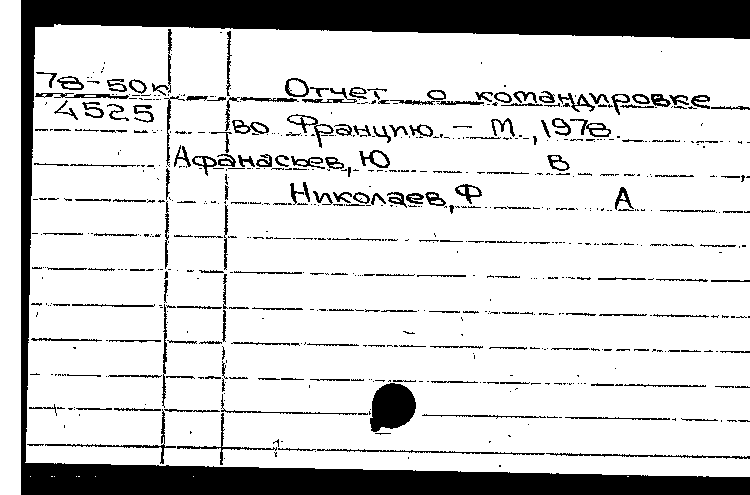 78-50к Отчет о командировке
4525 во Францию. - М., 1978.
Афанасьев, Ю В
Николаев, Ф А